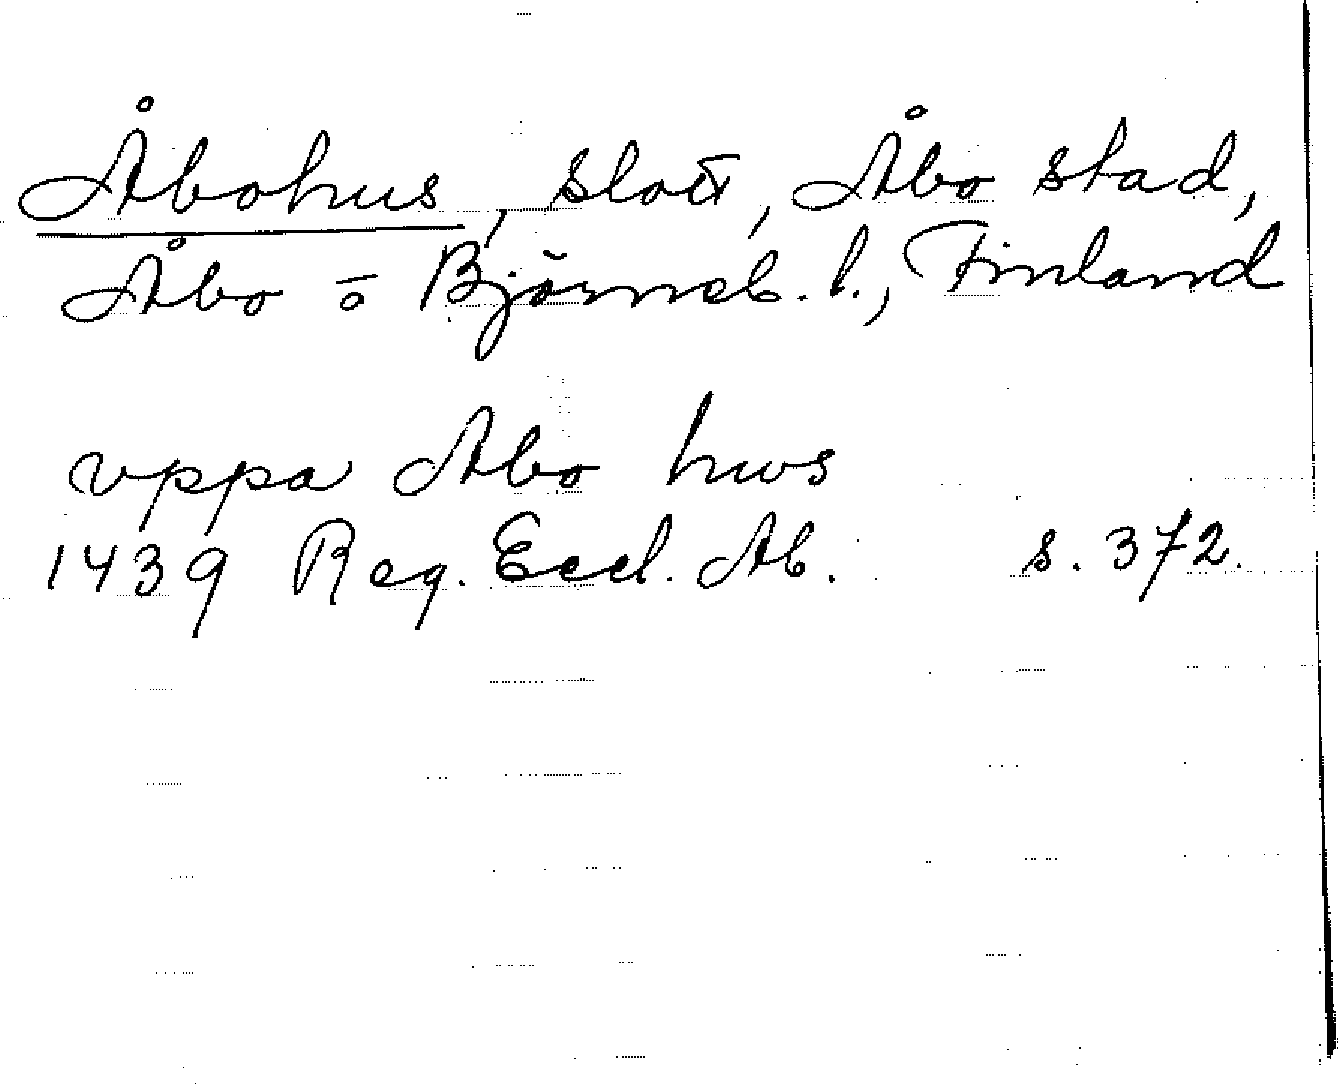 Åbohus, slott, Åbo stad,
Åbo o Björneb. l., Finland
vppa Abo hws
1439 Reg. Eccl. Ab. s. 372.